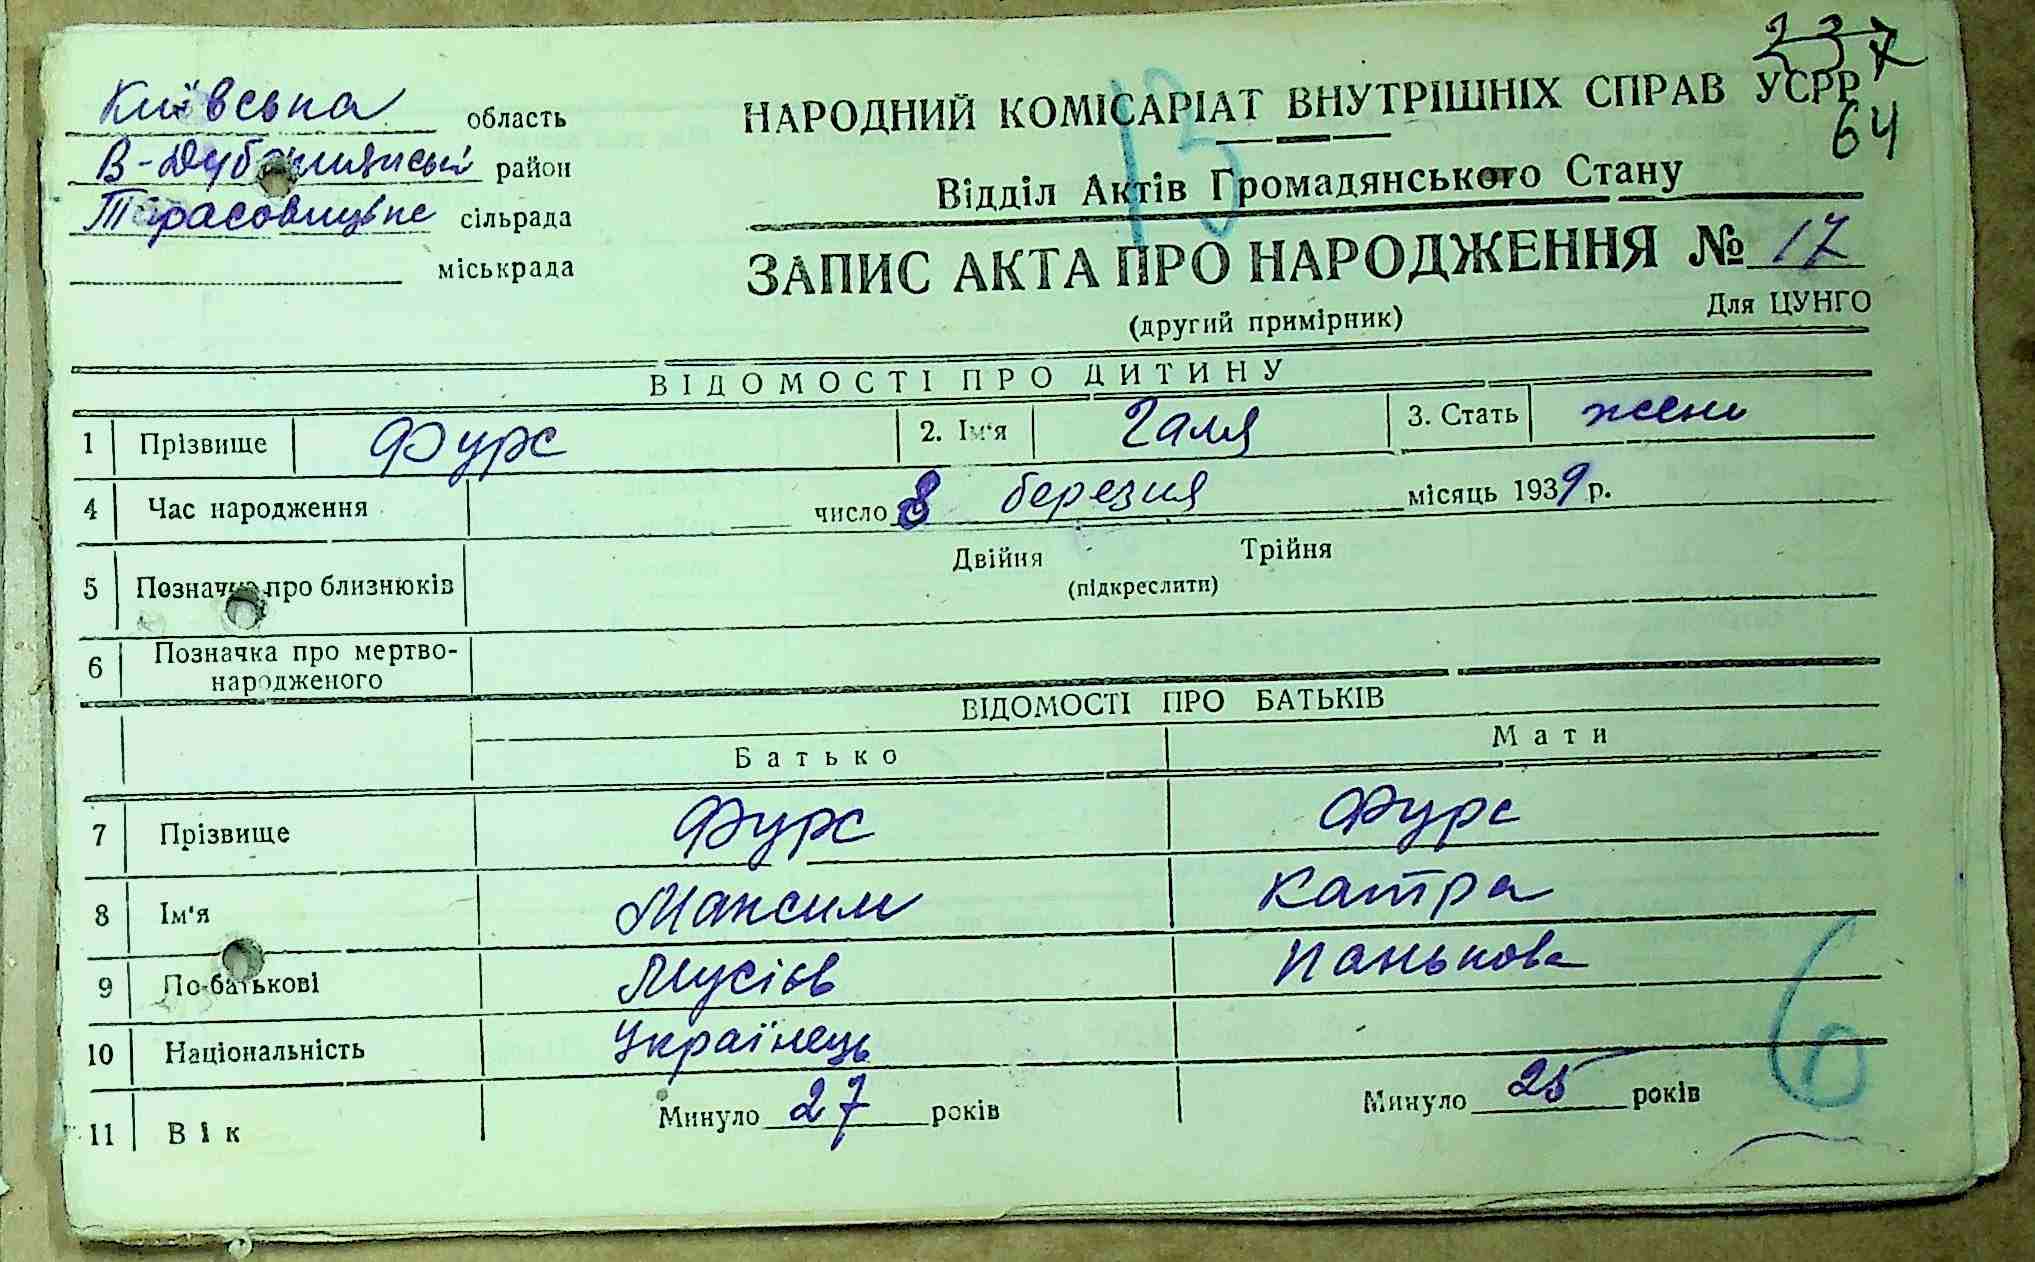 237
64
Київська область
В-Димерський район
Тарасовицьке сільрада
міськрада
НАРОДНИЙ КОМІСАРІАТ ВНУТРІШНІХ СПРАВ УСРР
13
Відділ Актів Громадянського Стану
ЗАПИС АКТА ПРО НАРОДЖЕННЯ № 17
(другий примірник)
Для ЦУНГО
ВІДОМОСТІ ПРО ДИТИНУ
1 Прізвище Фурс 2. Ім'я Галя 3. Стать жено
4 Час народження число 8 березня місяць 1939 р.
5 Позначка про близнюків Двійня Трійня
(підкреслити)
6 Позначка про мертво-
народженого
ВІДОМОСТІ ПРО БАТЬКІВ
Батько Мати
7 Прізвище Фурс Фурс
8 Ім'я Максим Катра
9 По-батькові Мусієв Панькова
10 Національність Українець
11 Вік Минуло 27 років Минуло 25 років
6